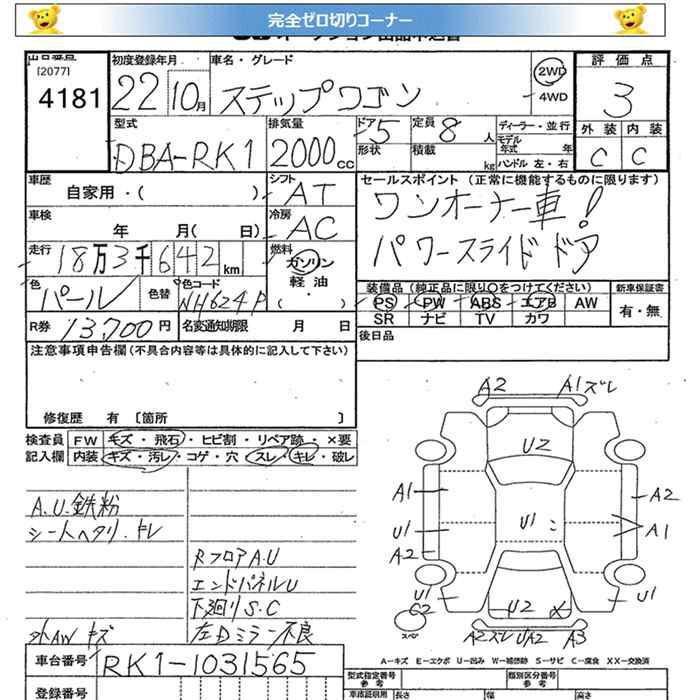 完全ゼロ切りコーナー
出品番号
[2077]
4181
初度登録年月
22 10月
車名・グレード
ステップワゴン
2WD
4WD
評価点
3
外装 内装
C C
型式
DBA-RK1
排気量
2000cc
ドア 5
形状
定員 8 人
積載 kg
ディーラー・並行
モデル年式 年
ハンドル 左・右
車歴
自家用・( )
シフト
AT
車検
年 月( 日)
冷房
AC
走行
18万3千642km
燃料
ガソリン
軽油
色
パール
色替
色コード
NH624P
R券 13,700円
名変通知期限 月 日
セールスポイント(正常に機能するものに限ります)
ワンオーナー車!
パワースライドドア
装備品(純正品に限り○をつけてください)
PS PW ABS エアB AW
SR ナビ TV カワ
新車保証書
有・無
後日品
注意事項申告欄(不具合内容等は具体的に記入して下さい)
修復歴 有 〔箇所 〕
検査員
記入欄
FW キズ・飛石・ヒビ割・リペア跡・×要
内装 キズ・汚レ・コゲ・穴 スレ・キレ・破レ
A.U.鉄粉
シートヘタリ.キレ
RフロアA.U
エンドパネルU
下廻りS.C
外AW キズ
左Dミラー不良
A2 A1ズレ
U2
A1 A2
U1 U1 A1
A2
U1 U1
C2
U2 X
A2ズレ UA2 A3
A-キズ E-エクボ U-凹み W-補修跡 S-サビ C-腐食 XX-交換済
車台番号
RK1-1031565
登録番号
型式指定番号
参考
類別区分番号
参考
長さ 幅 高さ